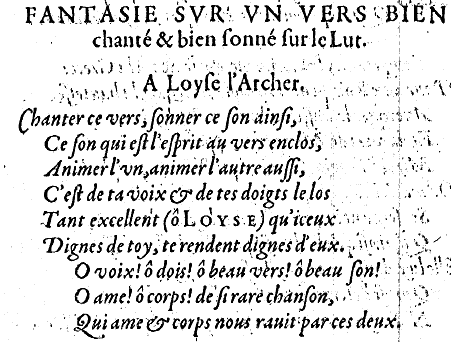 FANTASIE SVR VN VERS BIEN
chanté & bien ſonné ſur le Lut.
A Loyſe l'Archer.
Chanter ce vers, ſonner ce ſon ainſi,
Ce ſon qui eſt l'eſprit au vers enclos,
Animer l'vn, animer l'autre auſſi,
C'eſt de ta voix & de tes doigts le los
Tant excellent (ô LOYSE) qu'iceux
Dignes de toy, te rendent dignes d'eux.
O voix! ô dois! ô beau vers! ô beau ſon!
O ame! ô corps! de ſi rare chanſon,
Qui ame & corps nous rauit par ces deux.